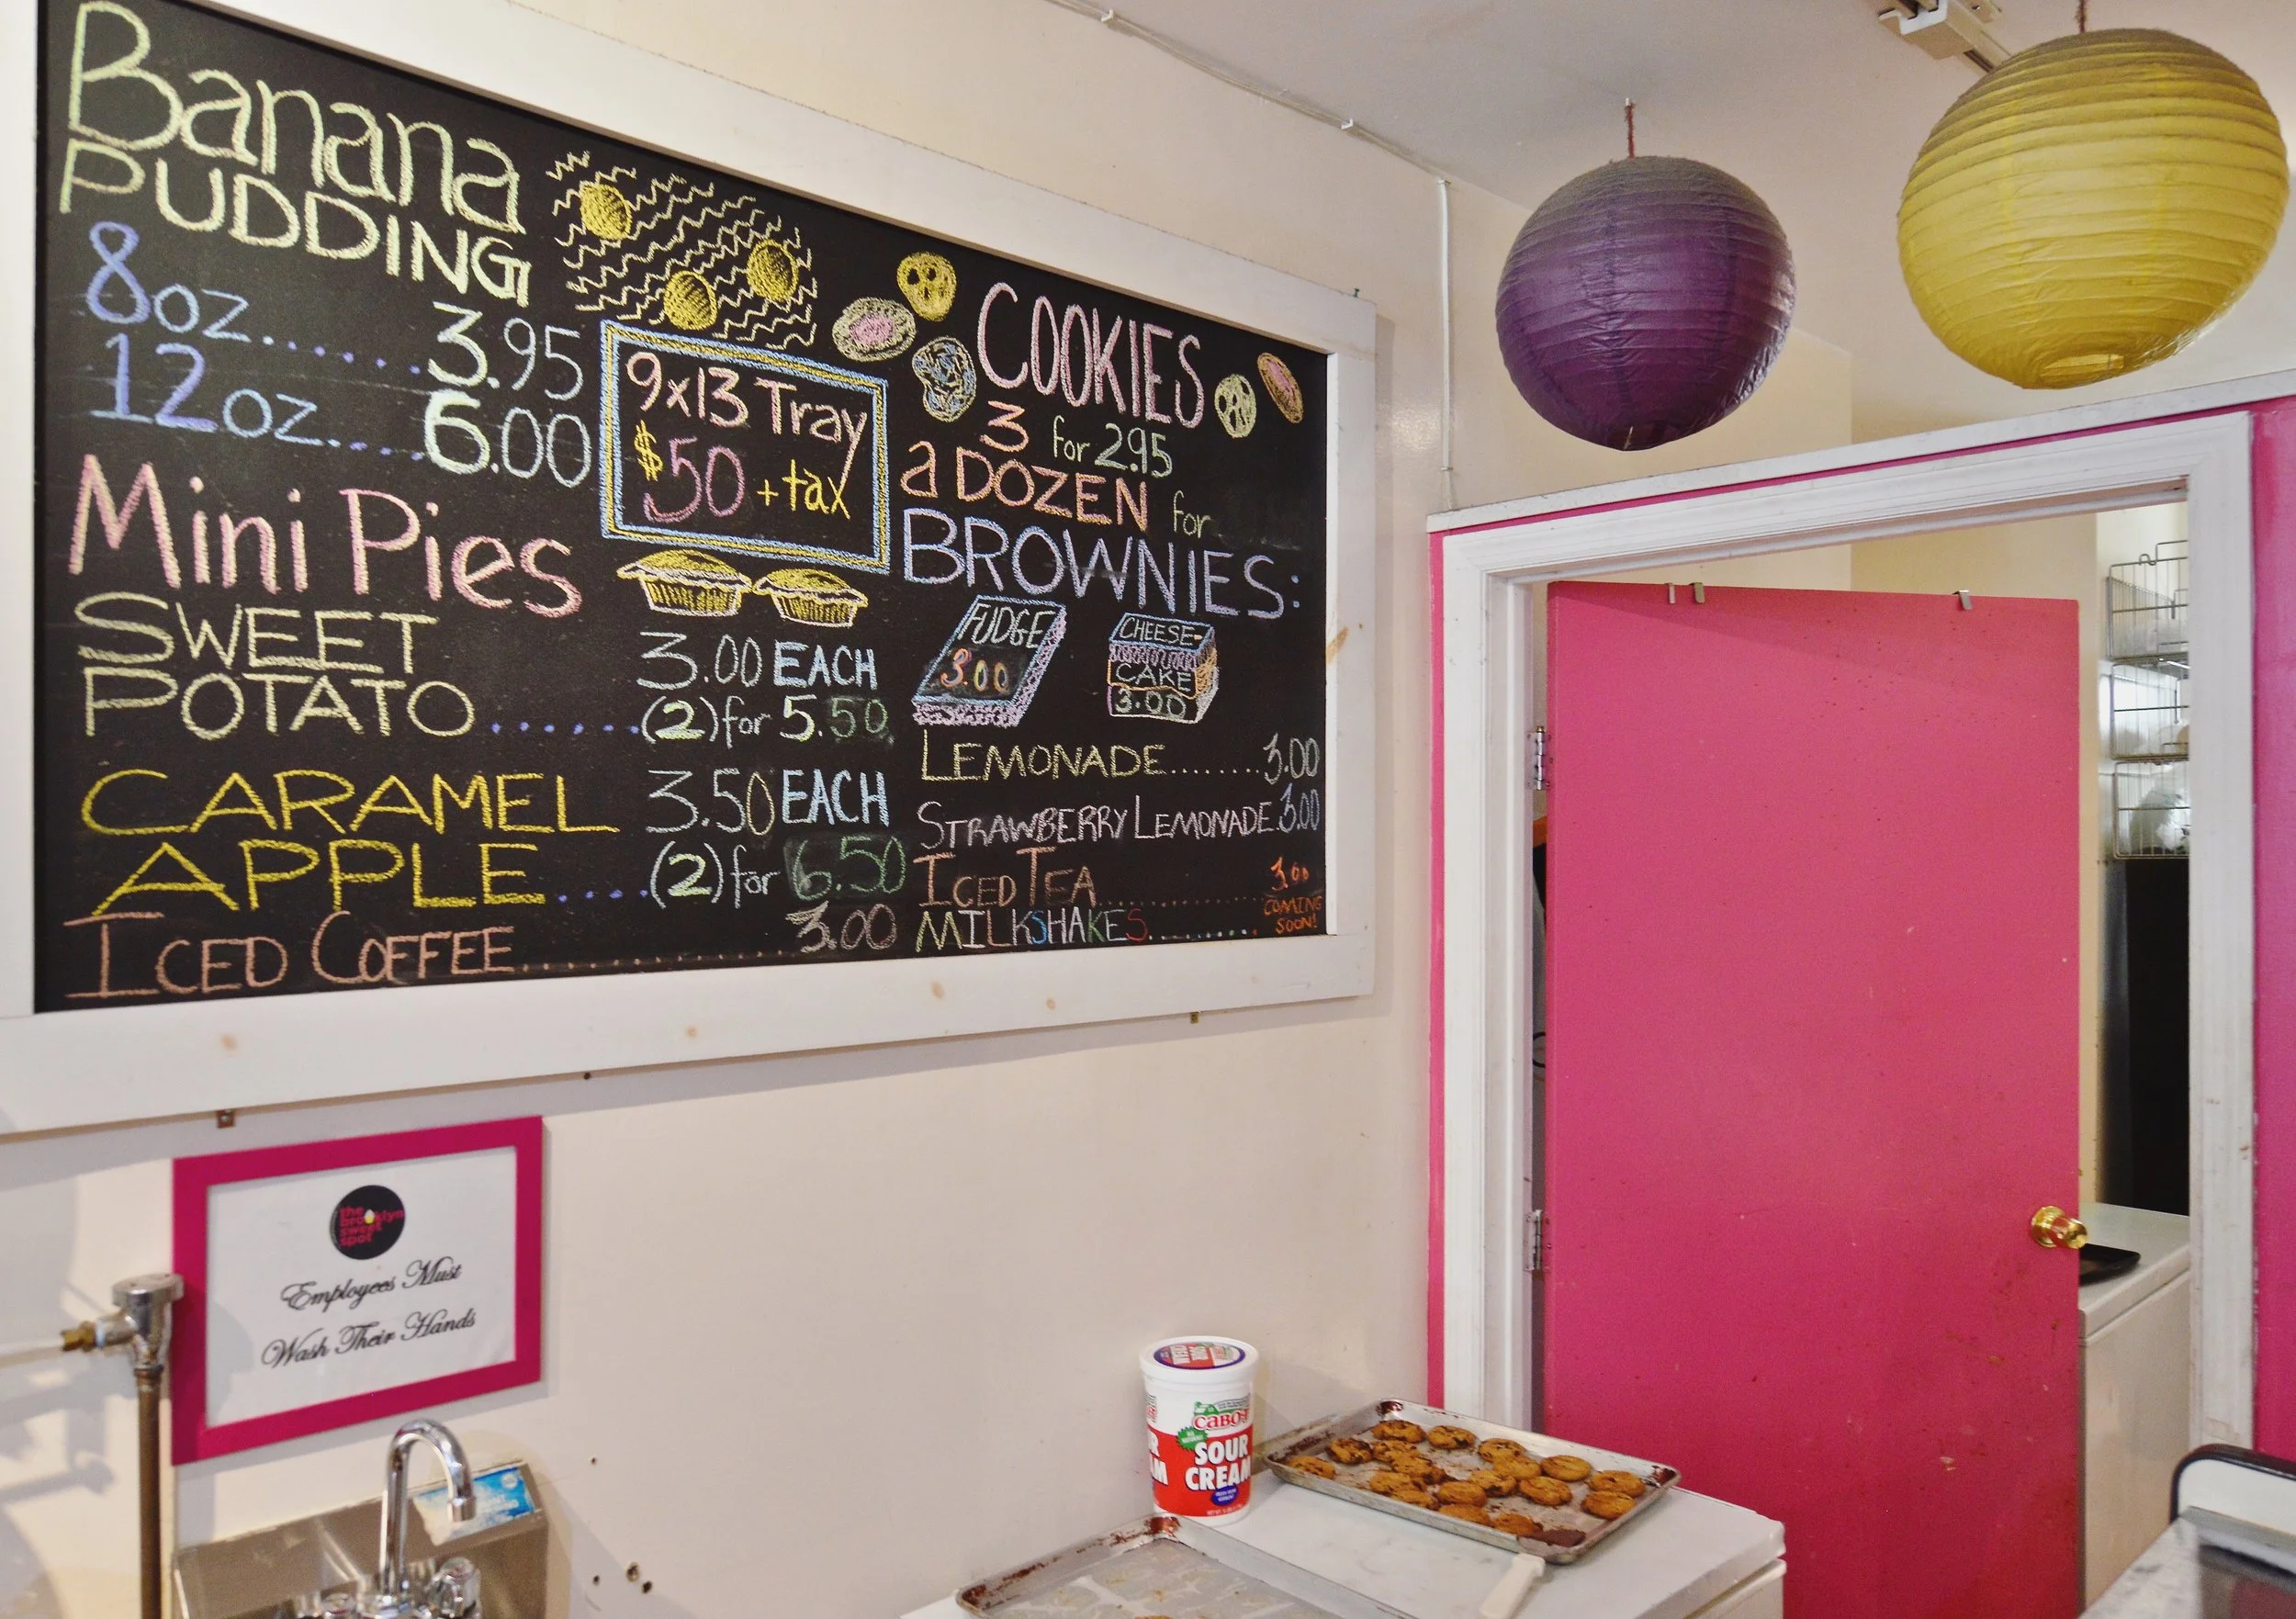 Banana
PUDDING
8oz......3.95
12oz.....6.00
9x13 Tray
$50 + tax
Mini Pies
SWEET
POTATO......
3.00 EACH
(2) for 5.50
CARAMEL
APPLE....
3.50 EACH
(2) for 6.50
ICED COFFEE....................3.00
COOKIES
3 for 2.95
a DOZEN for
BROWNIES:
FUDGE
3.00
CHEESE-
CAKE
3.00
LEMONADE........3.00
STRAWBERRY LEMONADE.3.00
ICED TEA..............3.00
MILKSHAKES.........COMING
SOON!
the
brooklyn
sweet
spot
Employees Must
Wash Their Hands
CABOT
SOUR
CREAM